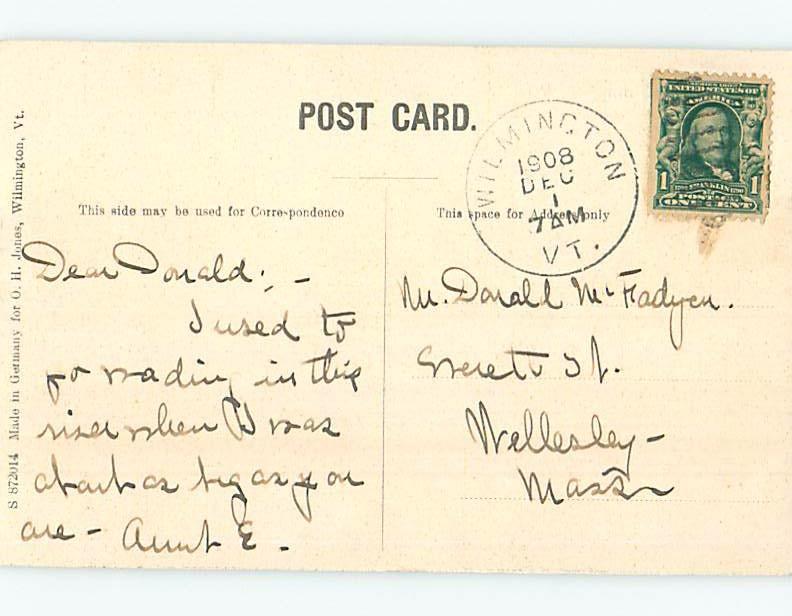 POST CARD.
WILMINGTON
1908
DEC
1
7 AM
VT.
SERIES 1902
UNITED STATES OF
AMERICA
1 FRANKLIN 1
POSTAGE
ONE CENT
This side may be used for Correspondence
This space for Address only
S 872014 Made in Germany for O. H. Jones, Wilmington, Vt.
Dear Donald: -
I used to
go wading in this
river when I was
about as big as you
are - Aunt E.
Mr. Donald McFadyen.
Everett St.
Wellesley -
Mass